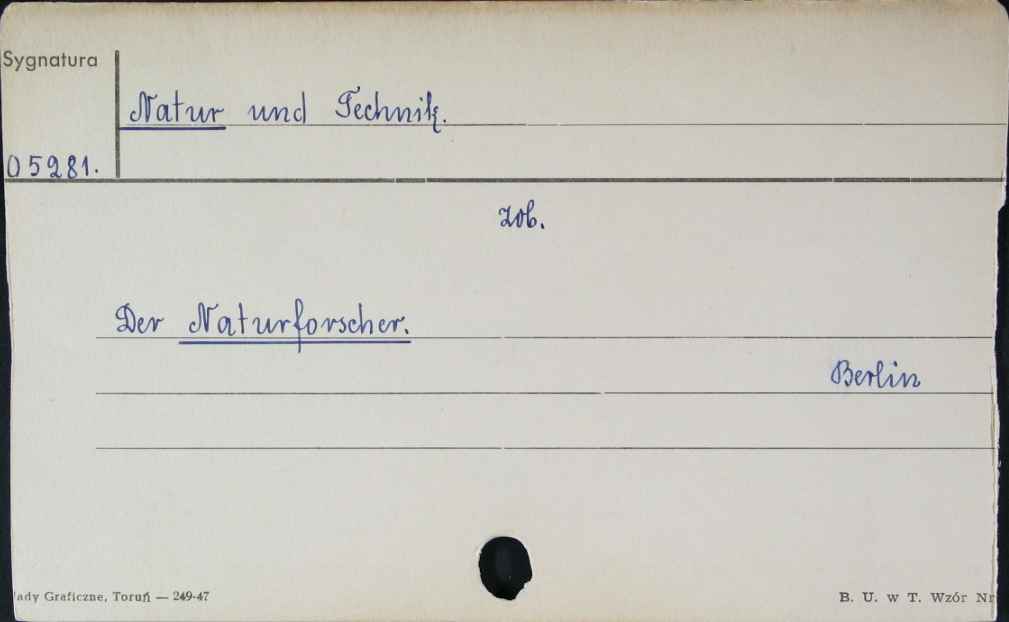 Sygnatura
Natur und Technik.
05281.
zob.
Der Naturforscher.
Berlin
ady Graficzne, Toruń — 249-47
B. U. w T. Wzór Nr